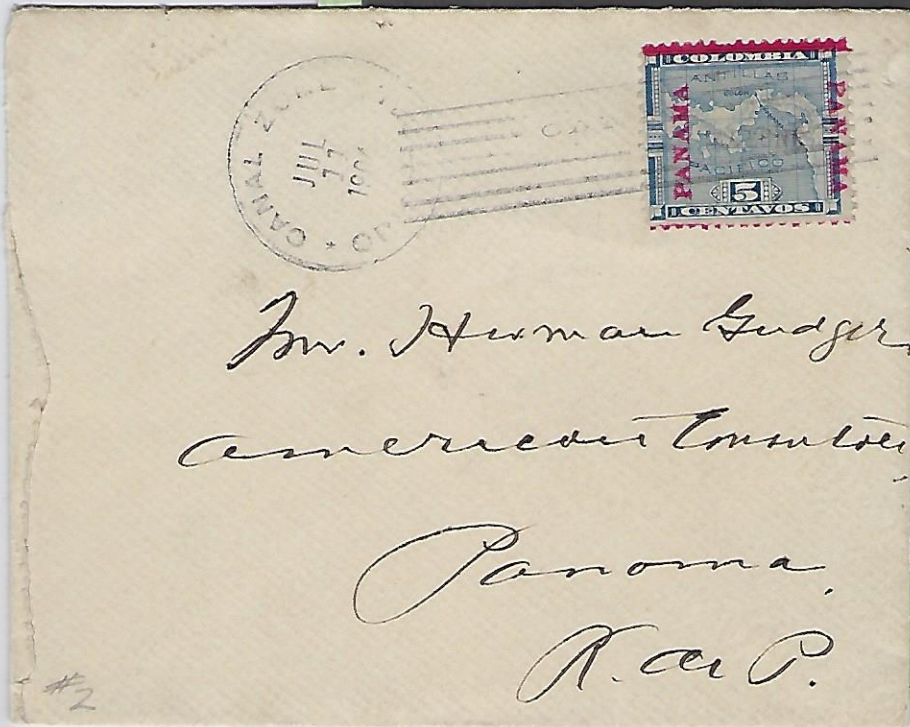 CANAL ZONE
JUL
COLOMBIA
ANTILLAS
COLON
PANAMA
PANAMA
PACIFICO
5
CENTAVOS
Mr. Herman Gudger,
American Consulate
Panama
R. de P.
#2